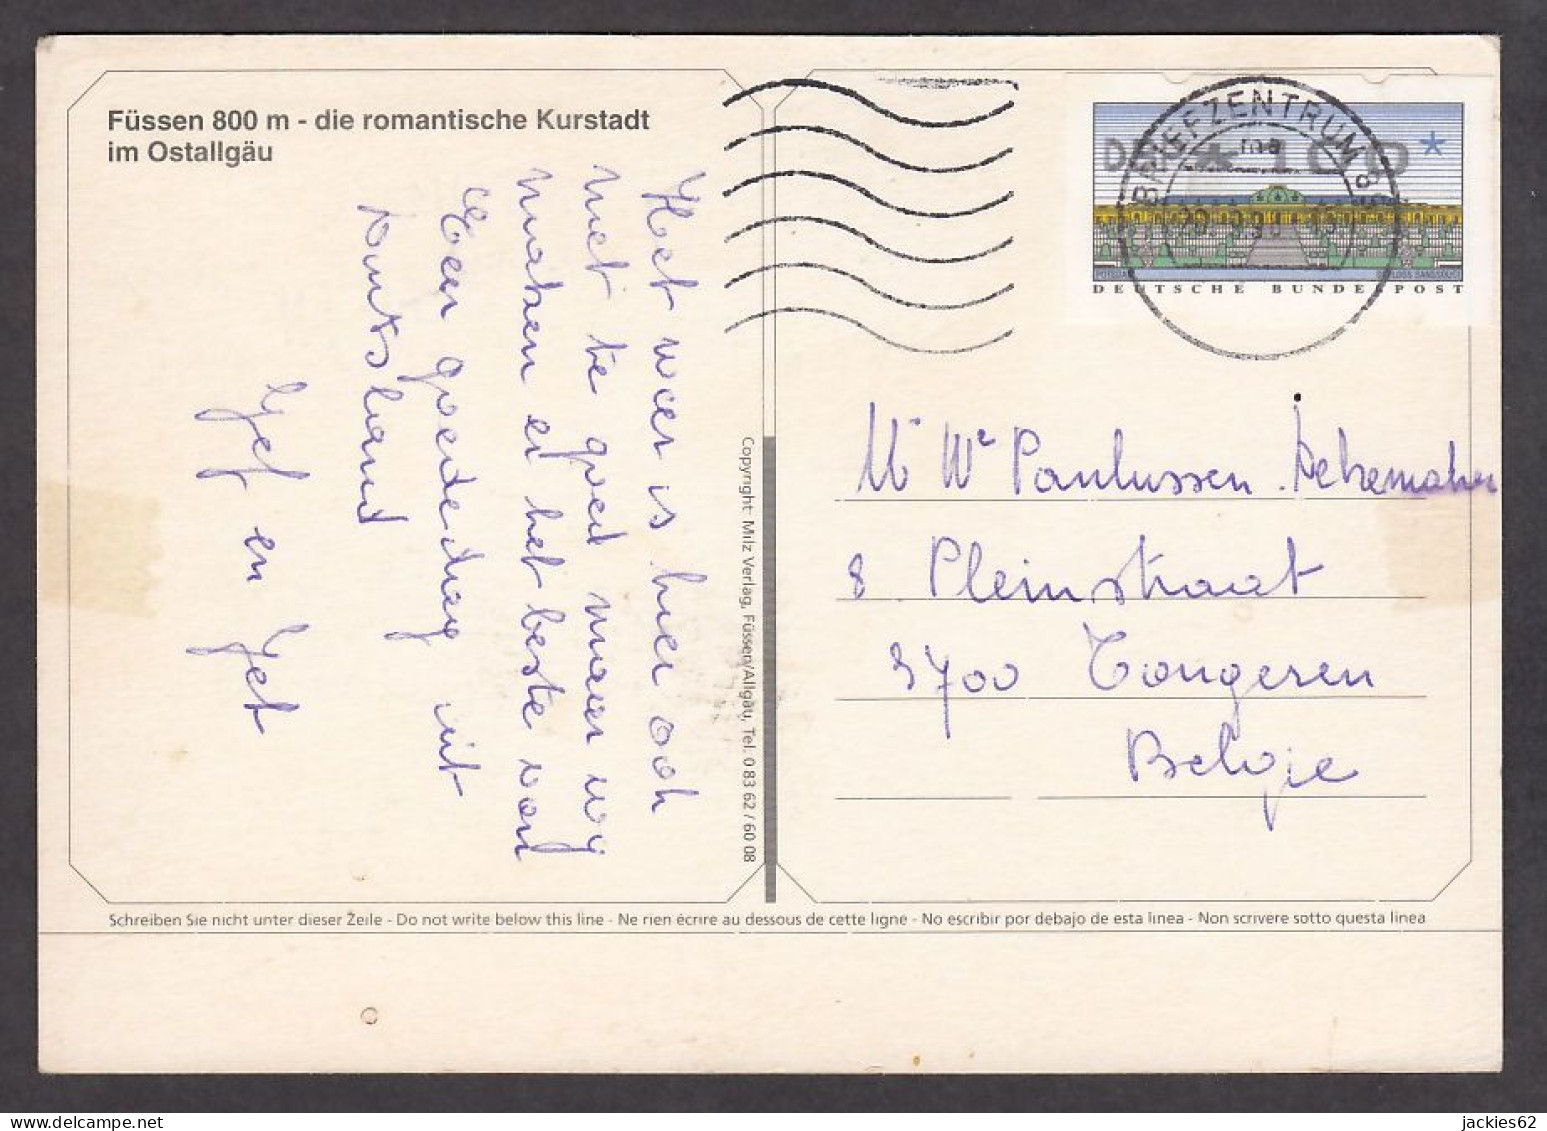 Füssen 800 m - die romantische Kurstadt
im Ostallgäu
Het weer is hier ook
niet te goed maar wij
maken er het beste van
Een goede dag uit
Duitsland
Jef en Jet
Copyright: Milz Verlag, Füssen/Allgäu, Tel. 0 83 62 / 60 08
BRIEFZENTRUM
ma
DEUTSCHE BUNDESPOST
Mr Me Paulussen.
8 Pleinstraat
3700 Tongeren
Belgie
Schreiben Sie nicht unter dieser Zeile - Do not write below this line - Ne rien écrire au dessous de cette ligne - No escribir por debajo de esta linea - Non scrivere sotto questa linea
jackies62